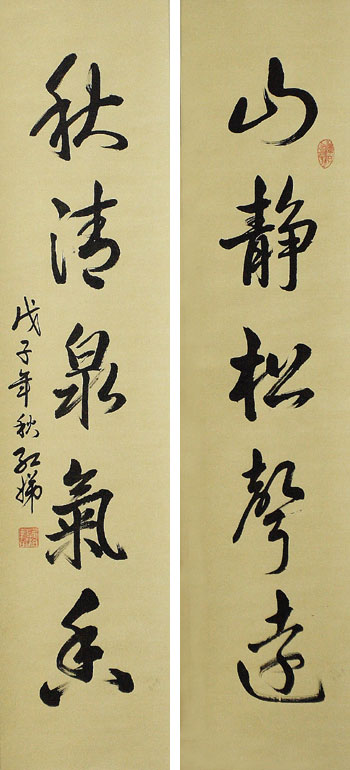 山静松聲遠
秋清泉氣香
戊子年秋紅娣